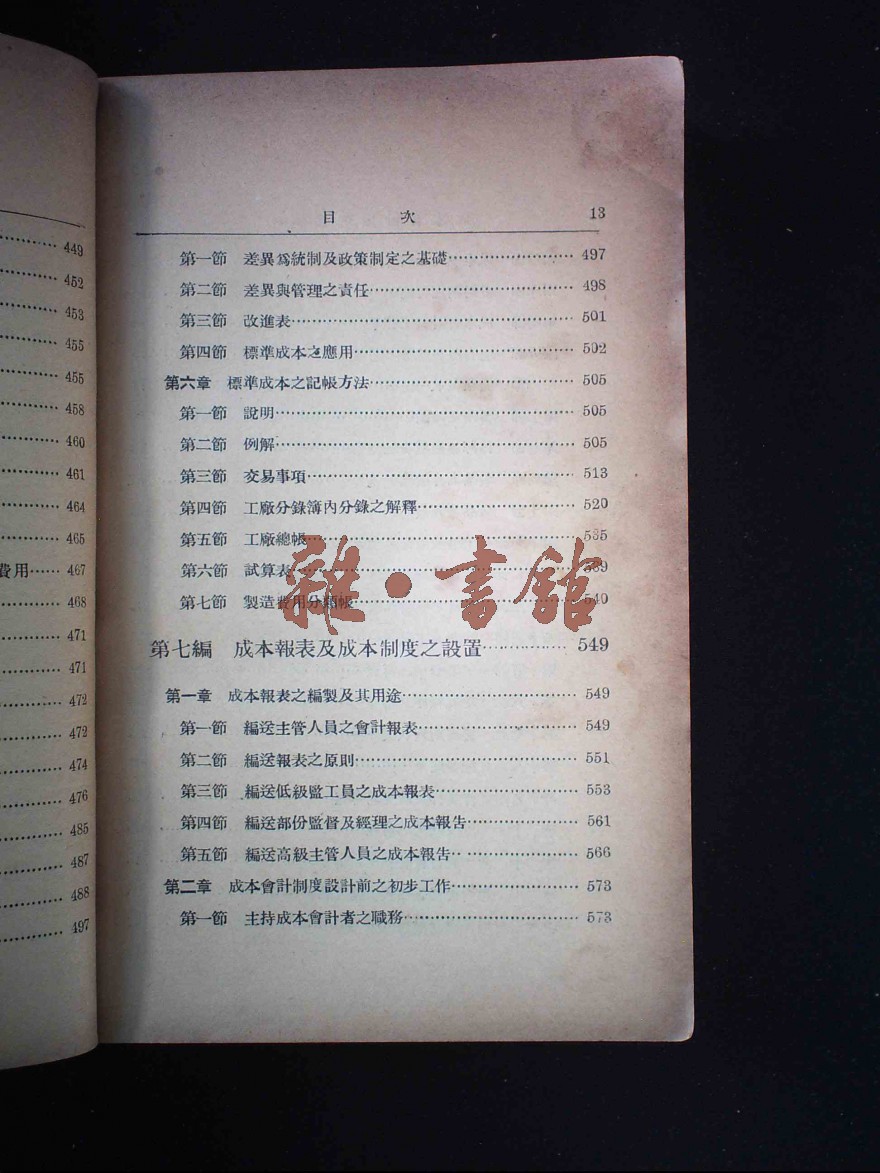 449
452
453
455
455
458
460
461
464
465
費用…… 467
468
471
471
472
472
474
476
485
487
488
497
目 次 13
第一節 差異爲統制及政策制定之基礎…… 497
第二節 差異與管理之責任…… 498
第三節 改進表…… 501
第四節 標準成本之應用…… 502
第六章 標準成本之記帳方法…… 505
第一節 說明…… 505
第二節 例解…… 505
第三節 交易事項…… 513
第四節 工廠分錄簿內分錄之解釋…… 520
第五節 工廠總帳…… 535
第六節 試算表…… 539
第七節 製造費用分類帳…… 540
雜·書館
第七編 成本報表及成本制度之設置…… 549
第一章 成本報表之編製及其用途…… 549
第一節 編送主管人員之會計報表…… 549
第二節 編送報表之原則…… 551
第三節 編送低級監工員之成本報表…… 553
第四節 編送部份監督及經理之成本報告…… 561
第五節 編送高級主管人員之成本報告…… 566
第二章 成本會計制度設計前之初步工作…… 573
第一節 主持成本會計者之職務…… 573